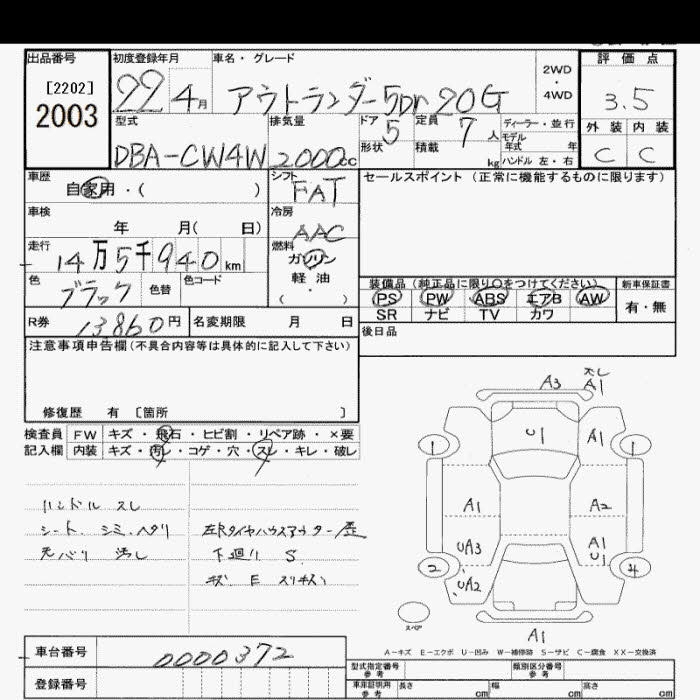 出品番号 初度登録年月 車名・グレード 2WD・4WD 評価点
[2202]
2003
22 4月 アウトランダー5Dr 20G 3.5
型式 排気量 ドア 5 定員 7人 ディーラー・並行 外装 内装
モデル年式 年
DBA-CW4W 2000cc 形状 積載 kg ハンドル 左・右 C C
車歴 自家用・( ) シフト FAT セールスポイント (正常に機能するものに限ります)
車検 年 月( 日) 冷房 AAC
走行 14万5千940km 燃料 ガソリン 軽油 ( ・ )
色 ブラック 色替 色コード
装備品 (純正品に限り○をつけてください) 新車保証書
PS PW ABS エアB AW 有・無
SR ナビ TV カワ
R券 13860円 名変期限 月 日 後日品
注意事項申告欄(不具合内容等は具体的に記入して下さい)
修復歴 有 〔箇所 〕
検査員 FW キズ・飛石・ヒビ割・リペア跡・×要
記入欄 内装 キズ・汚レ・コゲ・穴・スレ・キレ・破レ
ハンドル スレ
シート. シミ. ヘタリ
左Rタイヤハウスアウター歪
汚レ
下廻り S
A3 A1
U1 A1
1 1
A1 A2
UA3 A1 U1
2 4
UA2
スペア
A1
A-キズ E-エクボ U-凹み W-補修跡 S-サビ C-腐食 XX-交換済
車台番号 0000372
登録番号
型式指定番号 参考 類別区分番号 参考
車庫証明用 参考 長さ cm 幅 cm 高さ cm